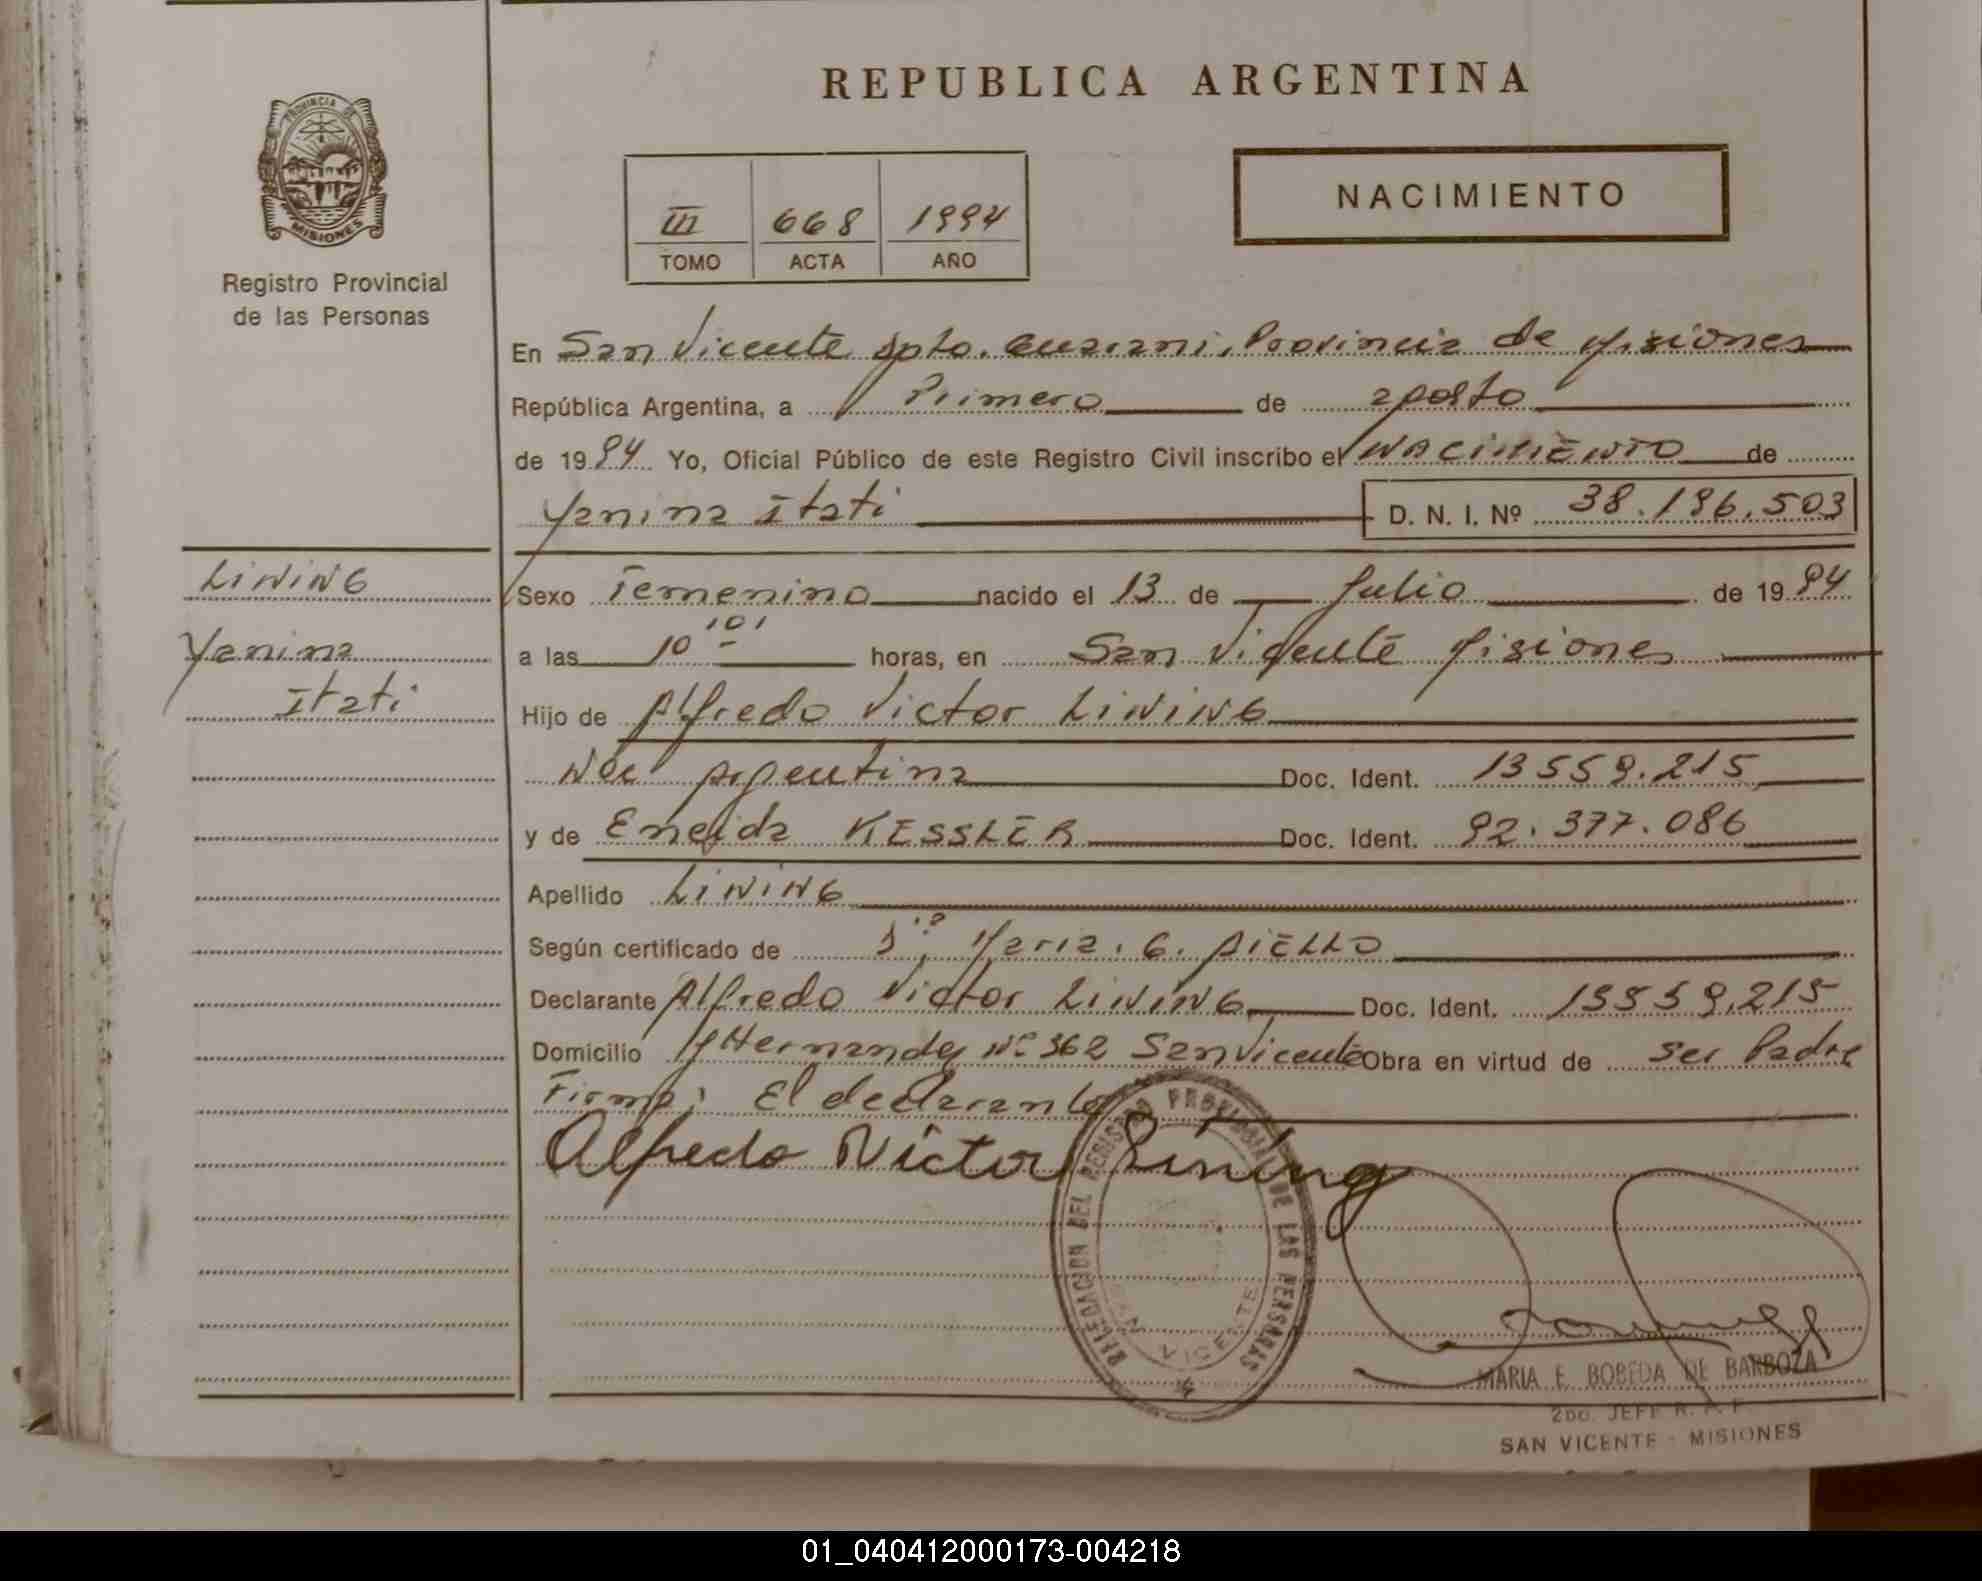 REPUBLICA ARGENTINA
PROVINCIA DE
MISIONES
Registro Provincial
de las Personas
NACIMIENTO
III 668 1994
TOMO ACTA AÑO
En San Vicente Dpto. Guarani, Provincia de Misiones
República Argentina, a Primero de agosto
de 1994 Yo, Oficial Público de este Registro Civil inscribo el NACIMIENTO de
Yanina Itati D. N. I. Nº 38.196.503
LINING
Yanina
Itati
Sexo Femenino nacido el 13 de Julio de 1994
a las 10 horas, en San Vicente Misiones
Hijo de Alfredo Victor LINING
Nac Argentina Doc. Ident. 13559.215
y de Eneida KESSLER Doc. Ident. 92.377.086
Apellido LINING
Según certificado de Maria. G. AIELLO
Declarante Alfredo Victor LINING Doc. Ident. 13559.215
Domicilio Nº 362 San Vicente Obra en virtud de ser Padre
Firma: El declarante
Alfredo Victor Lining
DELEGACION DEL REGISTRO PROVINCIAL DE LAS PERSONAS
SAN VICENTE
MARIA E. BOBEDA DE BARBOZA
2DO. JEFE R. P. P.
SAN VICENTE - MISIONES
01_040412000173-004218